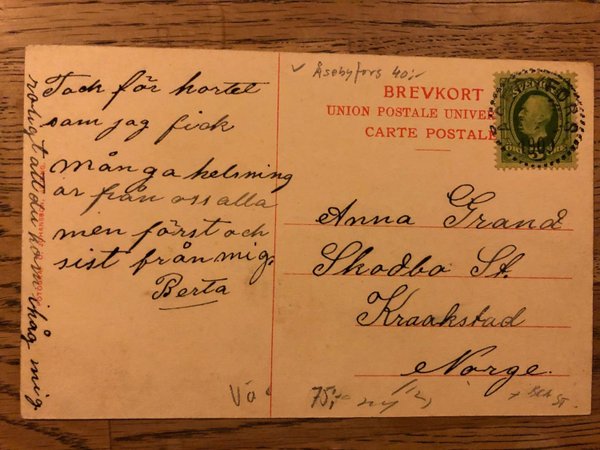 Tack för kortet
som jag fick
Många helsning
ar från oss alla
men först och
sist från mig.
Berta
roligt att du kom ihåg mig
✓ Åsebyfors 40:-
BREVKORT
UNION POSTALE UNIVER
CARTE POSTALE
FORS
1909
Anna Grand
Skodbo St.
Kraakstad
Norge.
Vä
75:-